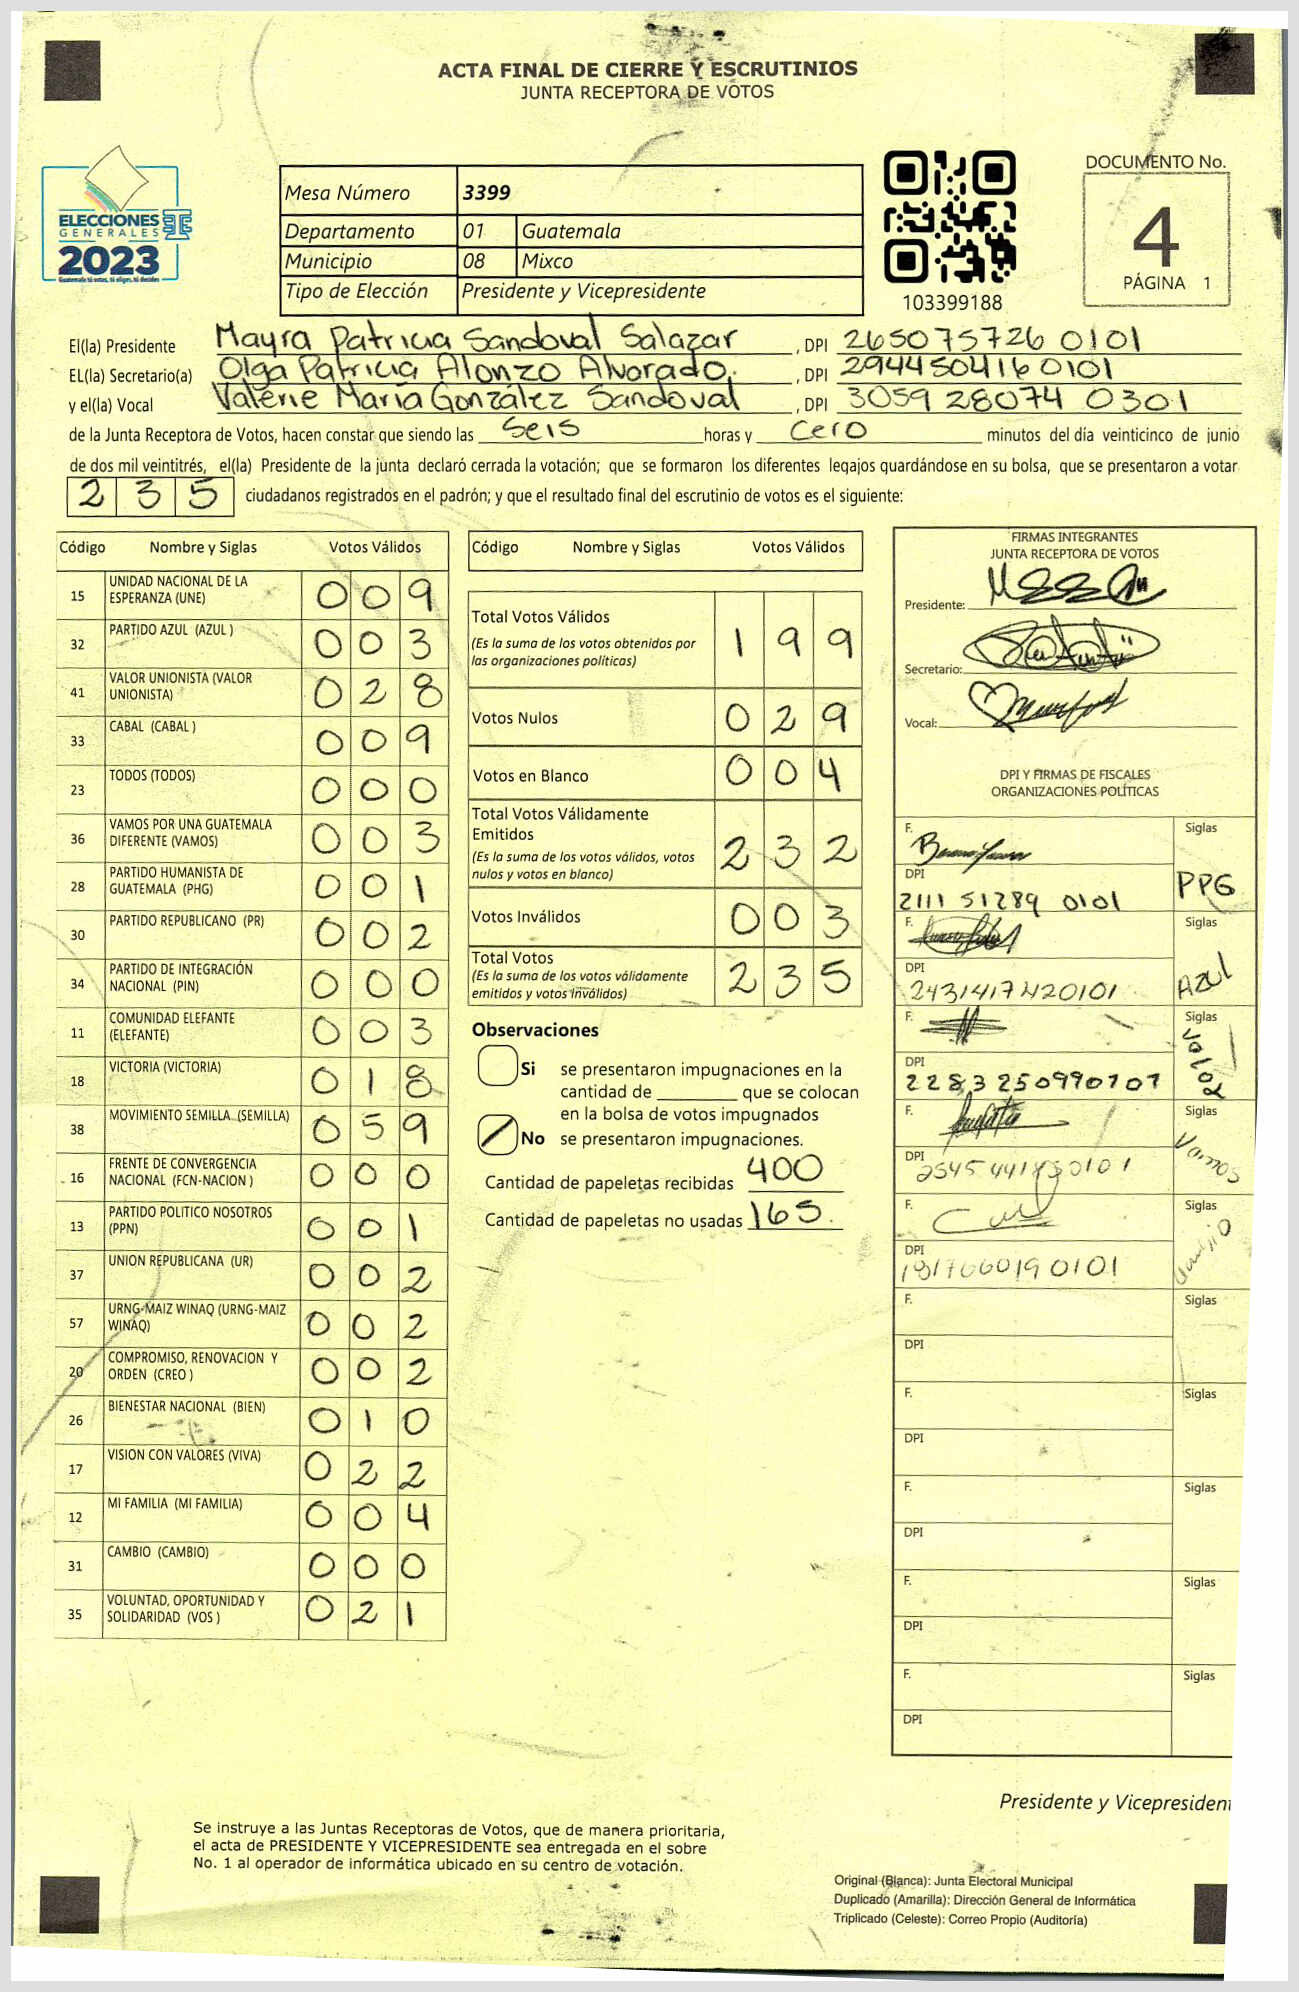 ACTA FINAL DE CIERRE Y ESCRUTINIOS
JUNTA RECEPTORA DE VOTOS
ELECCIONES
GENERALES
2023
Guatemala: tú votas, tú eliges, tú decides
Mesa Número 3399
Departamento 01 Guatemala
Municipio 08 Mixco
Tipo de Elección Presidente y Vicepresidente
103399188
DOCUMENTO No.
4
PÁGINA 1
El(la) Presidente Mayra Patricia Sandoval Salazar, DPI 265075726 0101
EL(la) Secretario(a) Olga Patricia Alonzo Alvorado, DPI 294450416 0101
y el(la) Vocal Valerie María González Sandoval, DPI 3059 28074 0301
de la Junta Receptora de Votos, hacen constar que siendo las Seis horas y Cero minutos del día veinticinco de junio
de dos mil veintitrés, el(la) Presidente de la junta declaró cerrada la votación; que se formaron los diferentes legajos guardándose en su bolsa, que se presentaron a votar
235 ciudadanos registrados en el padrón; y que el resultado final del escrutinio de votos es el siguiente:
Código Nombre y Siglas Votos Válidos
15 UNIDAD NACIONAL DE LA ESPERANZA (UNE) 009
32 PARTIDO AZUL (AZUL ) 003
41 VALOR UNIONISTA (VALOR UNIONISTA) 028
33 CABAL (CABAL ) 009
23 TODOS (TODOS) 000
36 VAMOS POR UNA GUATEMALA DIFERENTE (VAMOS) 003
28 PARTIDO HUMANISTA DE GUATEMALA (PHG) 001
30 PARTIDO REPUBLICANO (PR) 002
34 PARTIDO DE INTEGRACIÓN NACIONAL (PIN) 000
11 COMUNIDAD ELEFANTE (ELEFANTE) 003
18 VICTORIA (VICTORIA) 018
38 MOVIMIENTO SEMILLA (SEMILLA) 059
16 FRENTE DE CONVERGENCIA NACIONAL (FCN-NACION ) 000
13 PARTIDO POLITICO NOSOTROS (PPN) 001
37 UNION REPUBLICANA (UR) 002
57 URNG-MAIZ WINAQ (URNG-MAIZ WINAQ) 002
20 COMPROMISO, RENOVACION Y ORDEN (CREO ) 002
26 BIENESTAR NACIONAL (BIEN) 010
17 VISION CON VALORES (VIVA) 022
12 MI FAMILIA (MI FAMILIA) 004
31 CAMBIO (CAMBIO) 000
35 VOLUNTAD, OPORTUNIDAD Y SOLIDARIDAD (VOS ) 021
Código Nombre y Siglas Votos Válidos
Total Votos Válidos 199
(Es la suma de los votos obtenidos por
las organizaciones políticas)
Votos Nulos 029
Votos en Blanco 004
Total Votos Válidamente
Emitidos 232
(Es la suma de los votos válidos, votos
nulos y votos en blanco)
Votos Inválidos 003
Total Votos 235
(Es la suma de los votos válidamente
emitidos y votos inválidos)
Observaciones
Si se presentaron impugnaciones en la
cantidad de ________ que se colocan
en la bolsa de votos impugnados
No se presentaron impugnaciones.
Cantidad de papeletas recibidas 400
Cantidad de papeletas no usadas 165
FIRMAS INTEGRANTES
JUNTA RECEPTORA DE VOTOS
Presidente:
Secretario:
Vocal:
DPI Y FIRMAS DE FISCALES
ORGANIZACIONES POLÍTICAS
F. Siglas
DPI PPG
2111 51289 0101
F. Siglas
DPI Azul
2431417420101
F. Siglas
DPI Valor
2283250990101
F. Siglas
DPI Vamos
F. Siglas
DPI
F. Siglas
DPI
F. Siglas
DPI
F. Siglas
DPI
F. Siglas
DPI
F. Siglas
DPI
Presidente y Vicepresident
Se instruye a las Juntas Receptoras de Votos, que de manera prioritaria,
el acta de PRESIDENTE Y VICEPRESIDENTE sea entregada en el sobre
No. 1 al operador de informática ubicado en su centro de votación.
Original (Blanca): Junta Electoral Municipal
Duplicado (Amarilla): Dirección General de Informática
Triplicado (Celeste): Correo Propio (Auditoría)